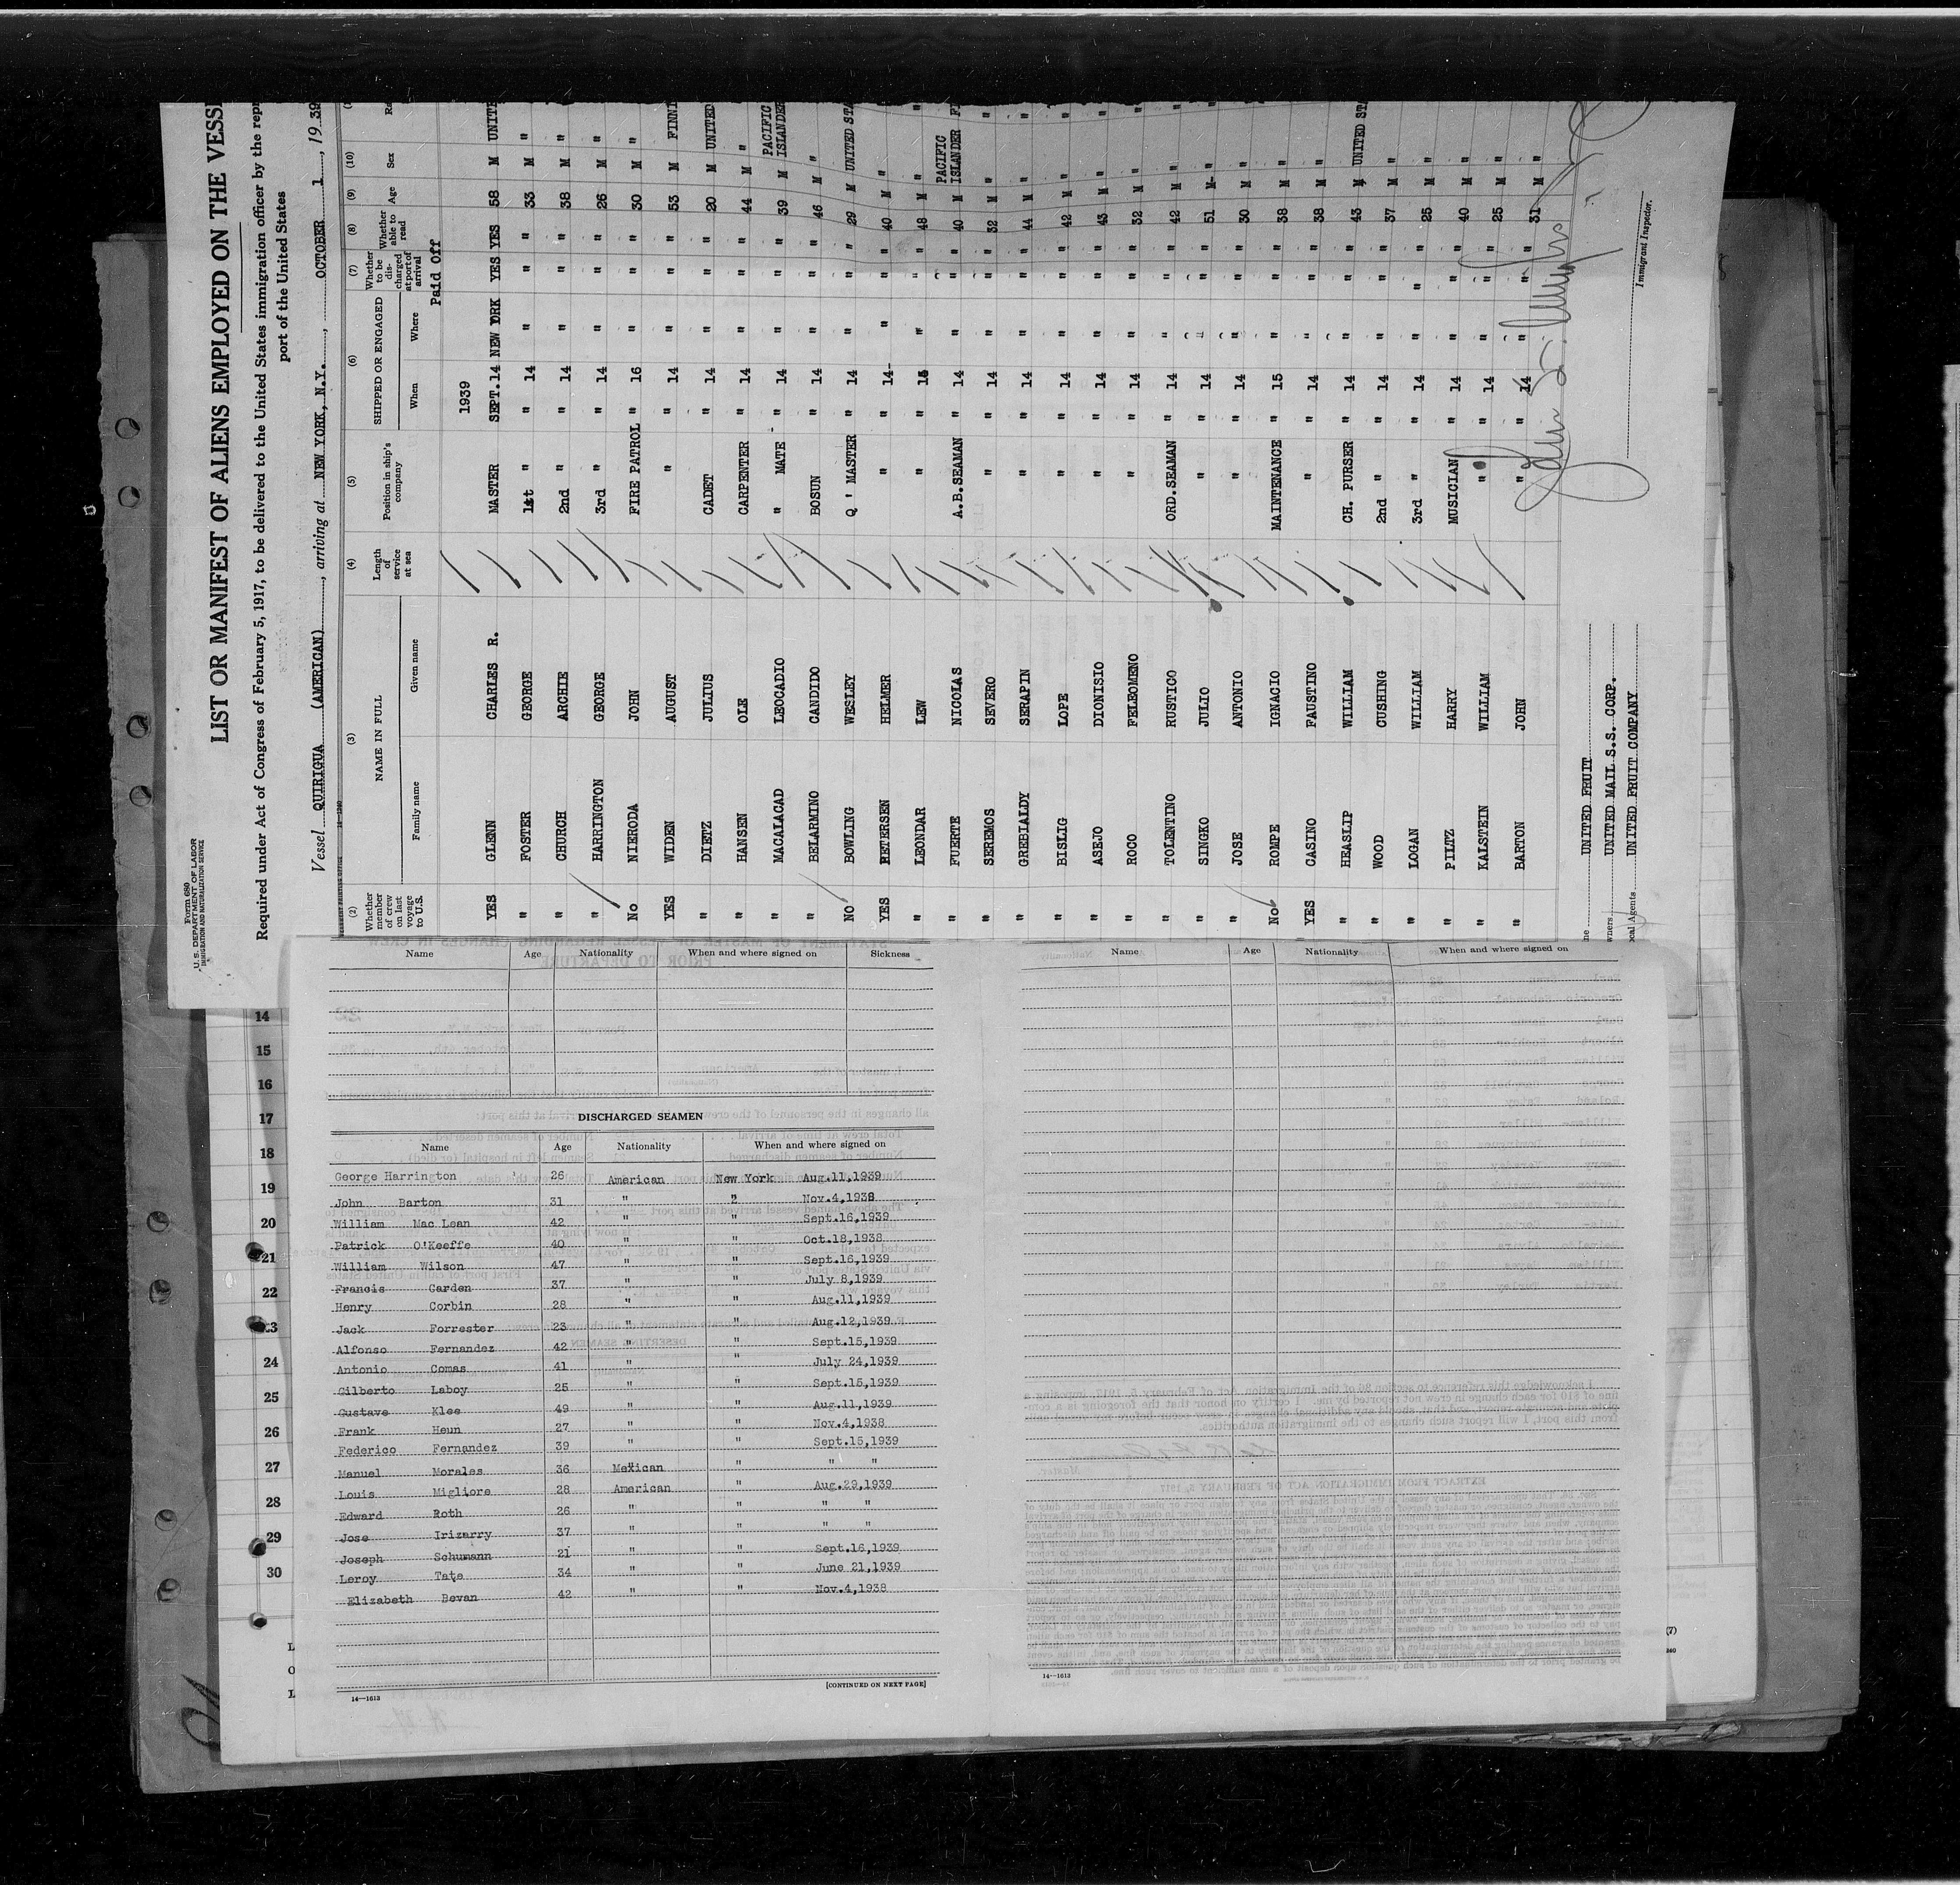 Form 680
U. S. DEPARTMENT OF LABOR
IMMIGRATION AND NATURALIZATION SERVICE
LIST OR MANIFEST OF ALIENS EMPLOYED ON THE VESS
Required under Act of Congress of February 5, 1917, to be delivered to the United States immigration officer by the rep
port of the United States
Vessel QUIRIGUA (AMERICAN), arriving at NEW YORK, N.Y., OCTOBER 1, 1939
(2) (3) (4) (5) (6) (7) (8) (9) (10)
Whether member of crew on last voyage to U.S. NAME IN FULL Family name Given name Length of service at sea Position in ship's company SHIPPED OR ENGAGED When Where Whether to be discharged at port of arrival Whether able to read Age Sex Ra
1939 Paid Off
YES GLENN CHARLES R. MASTER SEPT. 14 NEW YORK YES YES 58 M UNITE
" FOSTER GEORGE 1st " " 14 " " " 33 M "
" CHURCH ARCHIE 2nd " " 14 " " " 38 M "
" HARRINGTON GEORGE 3rd " " 14 " " " 26 M "
No NIERODA JOHN FIRE PATROL " 16 " " " 30 M "
YES WIDEN AUGUST " " 14 " " " 53 M FINN
" DIETZ JULIUS CADET " 14 " " " 20 M UNITED
" HANSEN OLE CARPENTER " 14 " " " 44 M "
" MACALACAD LEOCADIO " MATE " 14 " " " 39 M PACIFIC ISLANDER
" BELARMINO CANDIDO BOSUN " 14 " " " 46 M "
NO BOWLING WESLEY Q' MASTER " 14 " " " 29 M UNITED STA
YES PETERSEN HELMER " " 14 " " " 40 M "
" LEONDAR LEW " " 15 " " " 48 M "
" FUERTE NICOLAS A.B.SEAMAN " 14 " " " 40 M PACIFIC ISLANDER
" SEREMOS SEVERO " " 14 " " " 32 M "
" GREBIALDY SERAPIN " " 14 " " " 44 M "
" BISLIG LOPE " " 14 " " " 42 M "
" ASEJO DIONISIO " " 14 " " " 43 M "
" ROCO FELEOMENO " " 14 " " " 32 M "
" TOLENTINO RUSTIGO ORD.SEAMAN " 14 " " " 42 M "
" SINGKO JULIO " " 14 " " " 51 M "
" JOSE ANTONIO " " 14 " " " 30 M "
No ROMPE IGNACIO MAINTENANCE " 15 " " " 38 M "
YES CASINO FAUSTINO " " 14 " " " 38 M "
" HEASLIP WILLIAM CH. PURSER " 14 " " " 43 M UNITED STA
" WOOD CUSHING 2nd " " 14 " " " 37 M "
" LOGAN WILLIAM 3rd " " 14 " " " 25 M "
" PILTZ HARRY MUSICIAN " 14 " " " 40 M "
" KALSTEIN WILLIAM " " 14 " " " 25 M "
" BARTON JOHN " " 14 " " " 31 M "
UNITED FRUIT
wners UNITED MAIL S.S. CORP.
ocal Agents UNITED FRUIT COMPANY
Immigrant Inspector.
Name Age Nationality When and where signed on Sickness
DISCHARGED SEAMEN
Name Age Nationality When and where signed on
George Harrington 26 American New York Aug.11,1939
John Barton 31 " " Nov.4,1938
William Mac Lean 42 " " Sept.16,1939
Patrick O'Keeffe 40 " " Oct.18,1938
William Wilson 47 " " Sept.16,1939
Francis Carden 37 " " July 8,1939
Henry Corbin 28 " " Aug.11,1939
Jack Forrester 23 " " Aug.12,1939
Alfonso Fernandez 42 " " Sept.15,1939
Antonio Comas 41 " " July 24,1939
Gilberto Laboy 25 " " Sept.15,1939
Gustave Klee 49 " " Aug.11,1939
Frank Heun 27 " " Nov.4,1938
Federico Fernandez 39 " " Sept.15,1939
Manuel Morales 36 Mexican " " "
Louis Migliore 28 American " Aug.29,1939
Edward Roth 26 " " " "
Jose Irizarry 37 " " " "
Joseph Schumann 21 " " Sept.16,1939
Leroy Tate 34 " " June 21,1939
Elizabeth Bevan 42 " " Nov.4,1938
14—1613
[CONTINUED ON NEXT PAGE]
Name Age Nationality When and where signed on
14—1613
14
15
16
17
18
19
20
21
22
23
24
25
26
27
28
29
30
(7)